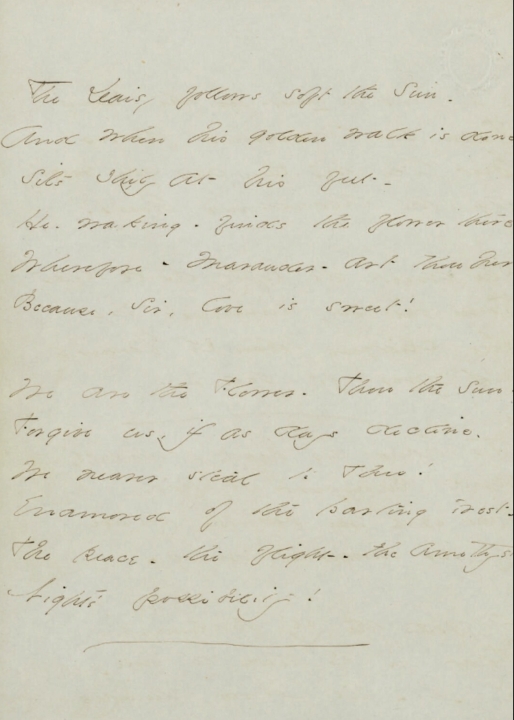 The Daisy follows soft the Sun.
And when his golden walk is done
Sits shyly at his feet.
He. waking. finds the flower there
Wherefore. Marauder. art thou here
Because, Sir, love is sweet!
We are the Flower. Thou the Sun.
Forgive us, if as days decline.
We nearer steal to Thee!
Enamored of the parting West.
The Peace. the flight. the Amethyst
Night's possibility!